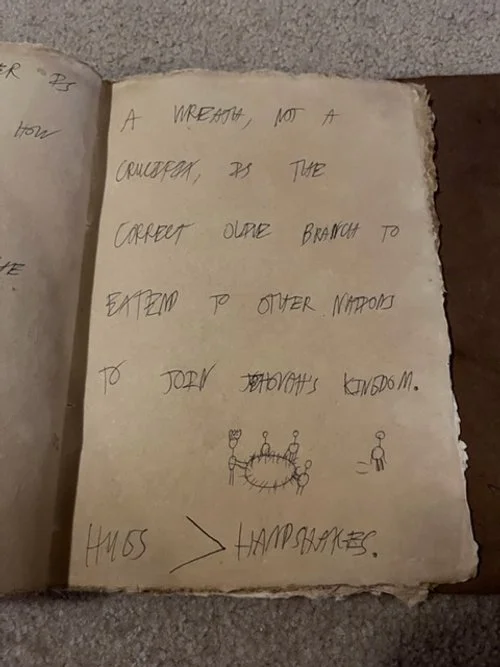 ER IS
HOW
HE
A WREATH, NOT A
CRUCIFIX, IS THE
CORRECT OLIVE BRANCH TO
EXTEND TO OTHER NATIONS
TO JOIN JEHOVAH'S KINGDOM.
HUGS > HANDSHAKES.